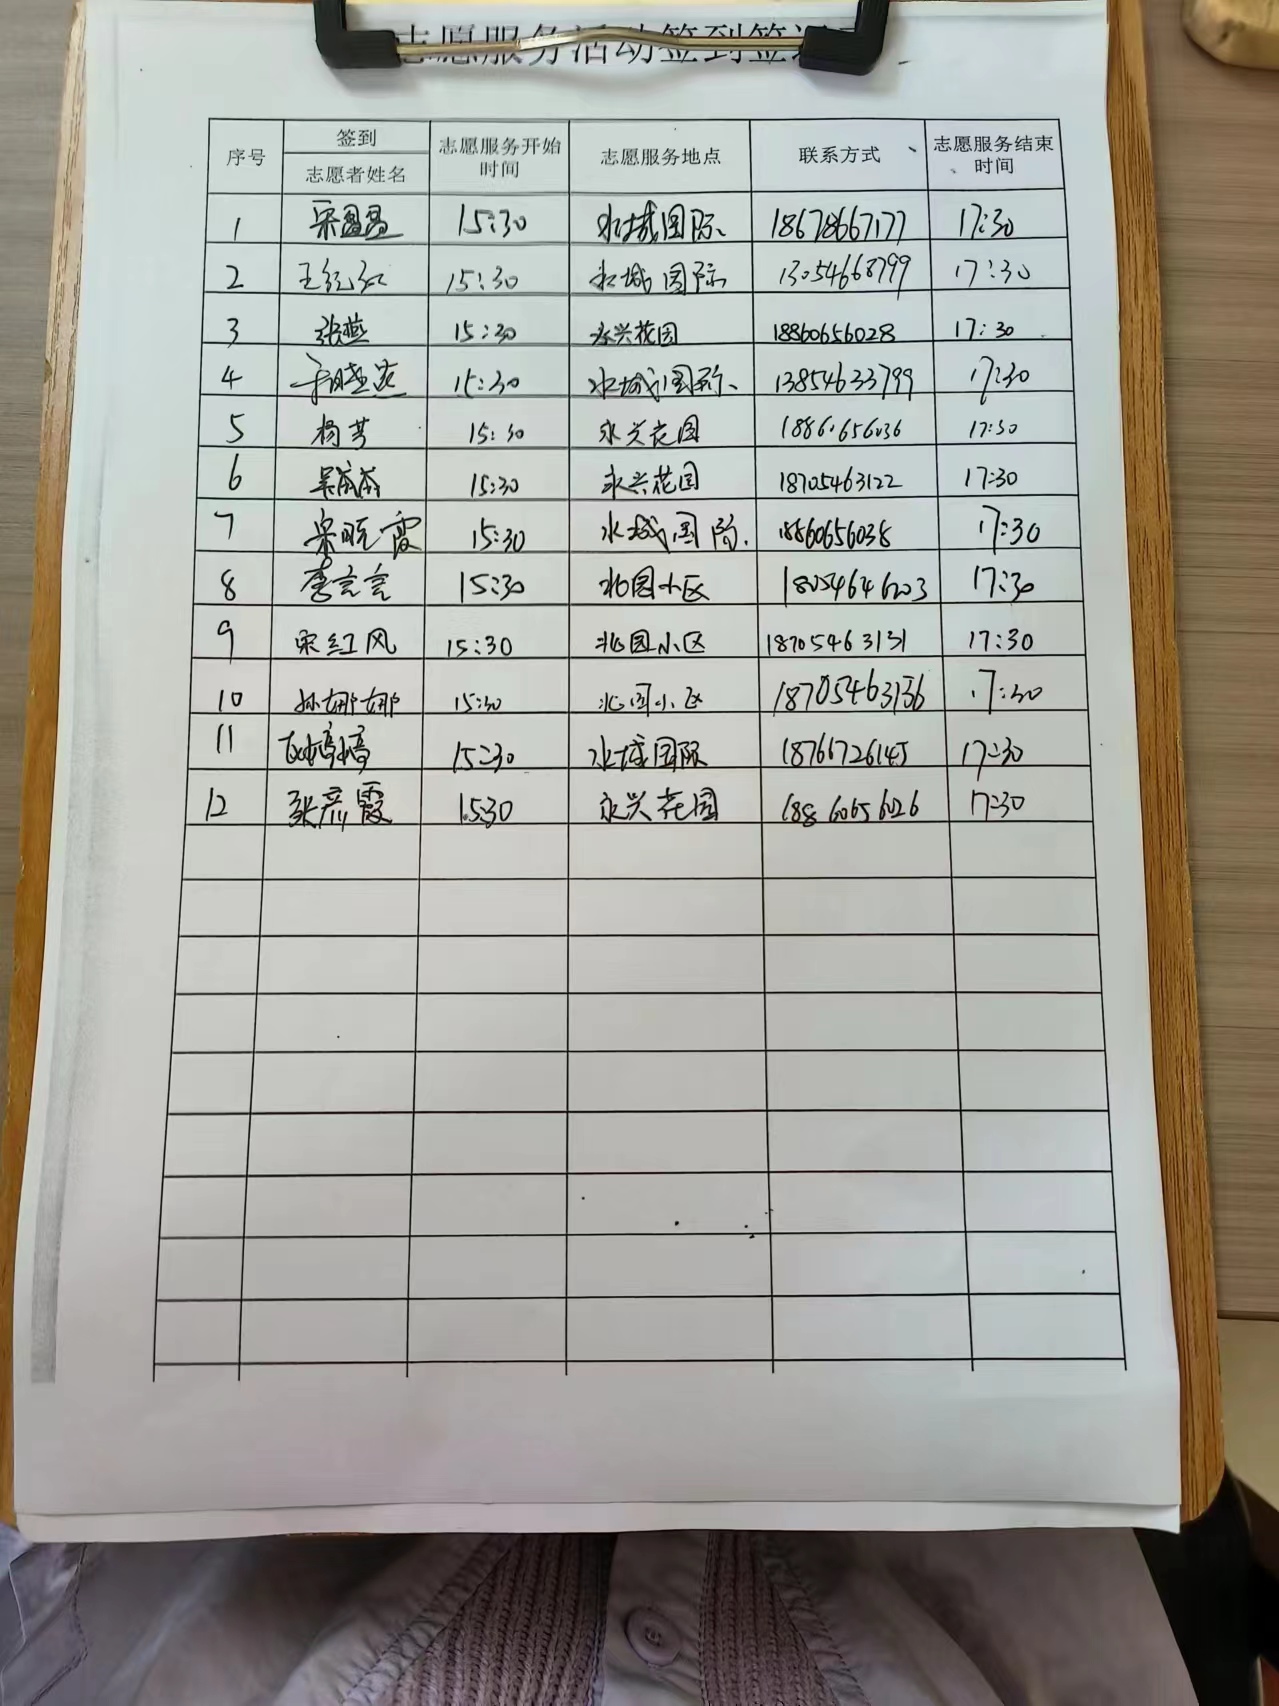 志愿服务活动签到签
序号 签到 志愿者姓名 志愿服务开始时间 志愿服务地点 联系方式 志愿服务结束时间
1 宋晶晶 15:30 水城国际、 18678667177 17:30
2 王红红 15:30 水城国际 13054668799 17:30
3 张燕 15:30 永兴花园 18860656028 17:30
4 15:30 水城国际、 13854633799 17:30
5 杨芳 15:30 永兴花园 18860656036 17:30
6 15:30 永兴花园 18705463122 17:30
7 宋晓霞 15:30 水城国际. 18860656038 17:30
8 李言言 15:30 北园小区 18054646203 17:30
9 宋红风 15:30 北园小区 18705463131 17:30
10 孙娜娜 15:30 北园小区 18705463136 17:30
11 15:30 水城国际 18766726145 17:30
12 张彦霞 1530 永兴花园 18860656026 17:30